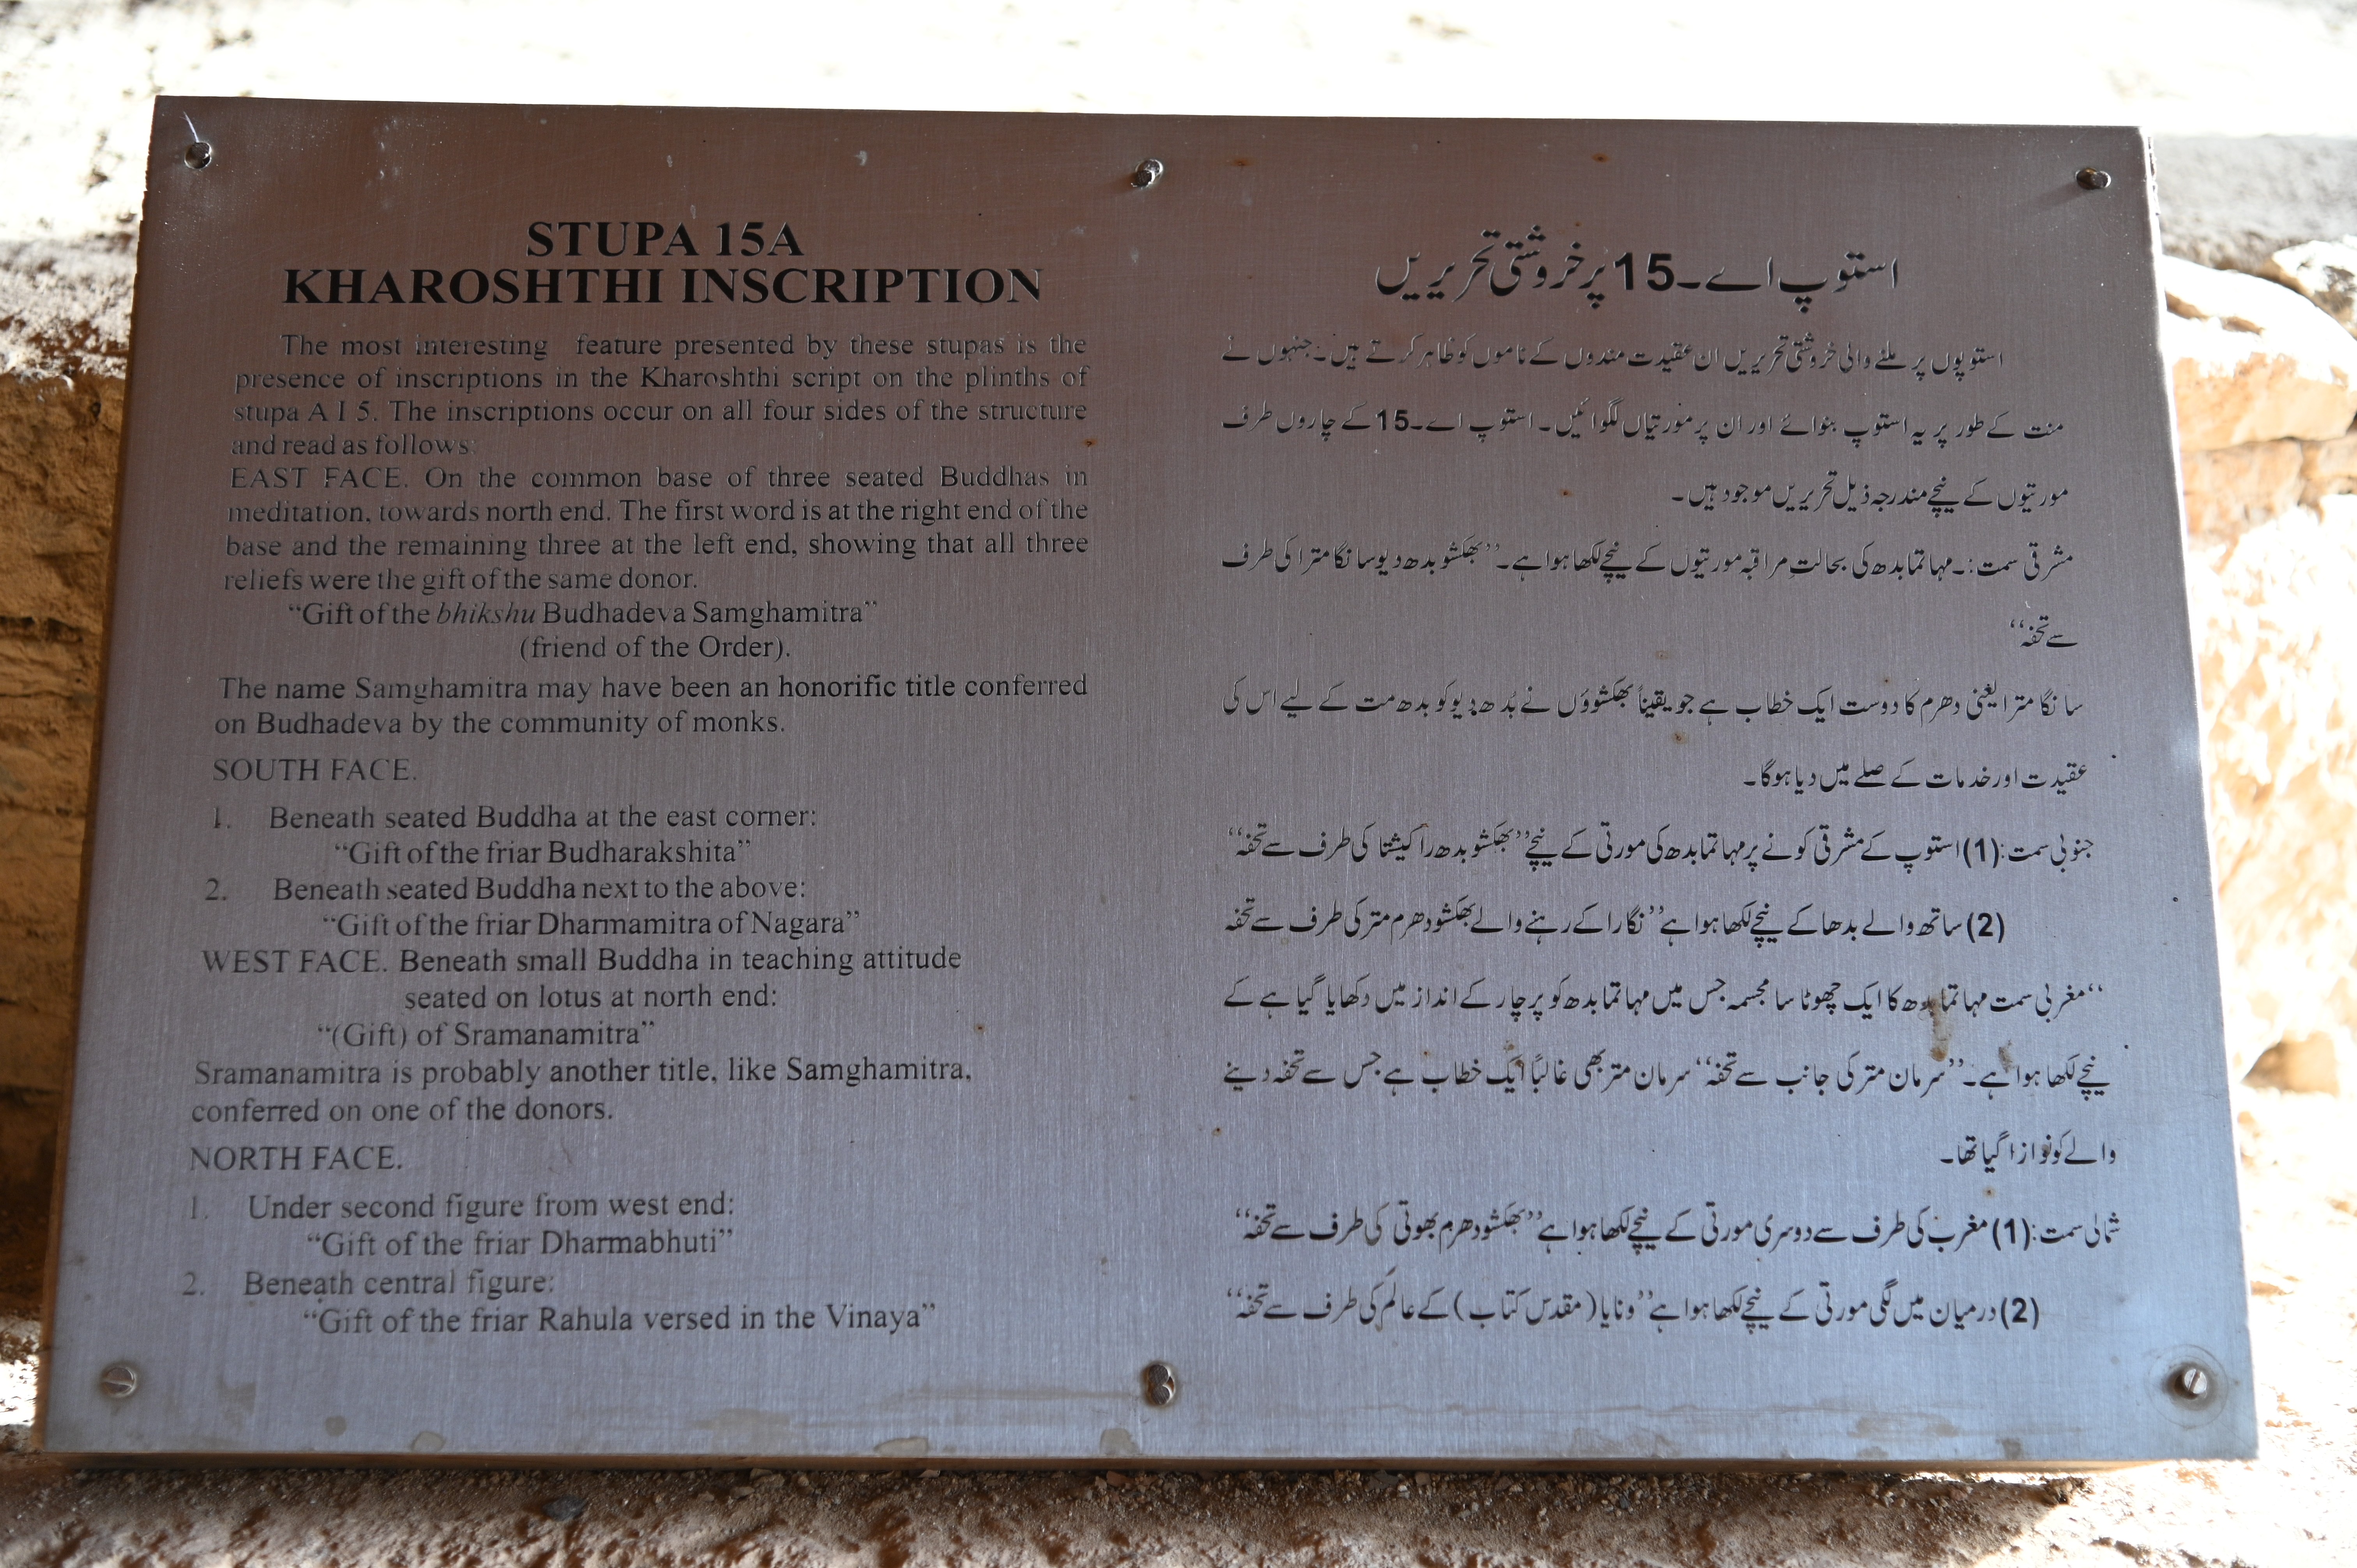 STUPA 15A
KHAROSHTHI INSCRIPTION
The most interesting feature presented by these stupas is the
presence of inscriptions in the Kharoshthi script on the plinths of
stupa A I 5. The inscriptions occur on all four sides of the structure
and read as follows:
EAST FACE. On the common base of three seated Buddhas in
meditation, towards north end. The first word is at the right end of the
base and the remaining three at the left end, showing that all three
reliefs were the gift of the same donor.
“Gift of the bhikshu Budhadeva Samghamitra”
(friend of the Order).
The name Samghamitra may have been an honorific title conferred
on Budhadeva by the community of monks.
SOUTH FACE.
1. Beneath seated Buddha at the east corner:
“Gift of the friar Budharakshita”
2. Beneath seated Buddha next to the above:
“Gift of the friar Dharmamitra of Nagara”
WEST FACE. Beneath small Buddha in teaching attitude
seated on lotus at north end:
“(Gift) of Sramanamitra”
Sramanamitra is probably another title, like Samghamitra,
conferred on one of the donors.
NORTH FACE.
1. Under second figure from west end:
“Gift of the friar Dharmabhuti”
2. Beneath central figure:
“Gift of the friar Rahula versed in the Vinaya”
استوپ اے۔15 پر خروشتی تحریریں
استوپوں پر ملنے والی خروشتی تحریریں ان عقیدت مندوں کے ناموں کو ظاہر کرتے ہیں۔ جنہوں نے
منت کے طور پر یہ استوپ بنوائے اور ان پر مورتیاں لگوائیں۔ استوپ اے۔15 کے چاروں طرف
مورتیوں کے نیچے مندرجہ ذیل تحریریں موجود ہیں۔
مشرقی سمت:۔ مہاتما بدھ کی بحالتِ مراقبہ مورتیوں کے نیچے لکھا ہوا ہے۔ ”بھکشو بدھ دیو سانگا مترا کی طرف
سے تحفہ“
سانگا مترا یعنی دھرم کا دوست ایک خطاب ہے جو یقیناً بھکشوؤں نے بُدھ دیو کو بدھ مت کے لیے اس کی
عقیدت اور خدمات کے صلے میں دیا ہوگا۔
جنوبی سمت: (1) استوپ کے مشرقی کونے پر مہاتما بدھ کی مورتی کے نیچے ”بھکشو بدھ راکیشتا کی طرف سے تحفہ“
(2) ساتھ والے بدھا کے نیچے لکھا ہوا ہے ”نگارا کے رہنے والے بھکشو دھرم متر کی طرف سے تحفہ
“مغربی سمت مہاتما بدھ کا ایک چھوٹا سا مجسمہ جس میں مہاتما بدھ کو پرچار کے انداز میں دکھایا گیا ہے کے
نیچے لکھا ہوا ہے۔ ”سرمان متر کی جانب سے تحفہ“ سرمان متر بھی غالباً ایک خطاب ہے جس سے تحفہ دینے
والے کو نوازا گیا تھا۔
شمالی سمت: (1) مغرب کی طرف سے دوسری مورتی کے نیچے لکھا ہوا ہے ”بھکشو دھرم بھوتی کی طرف سے تحفہ“
(2) درمیان میں لگی مورتی کے نیچے لکھا ہوا ہے ”ونایا (مقدس کتاب) کے عالم کی طرف سے تحفہ“